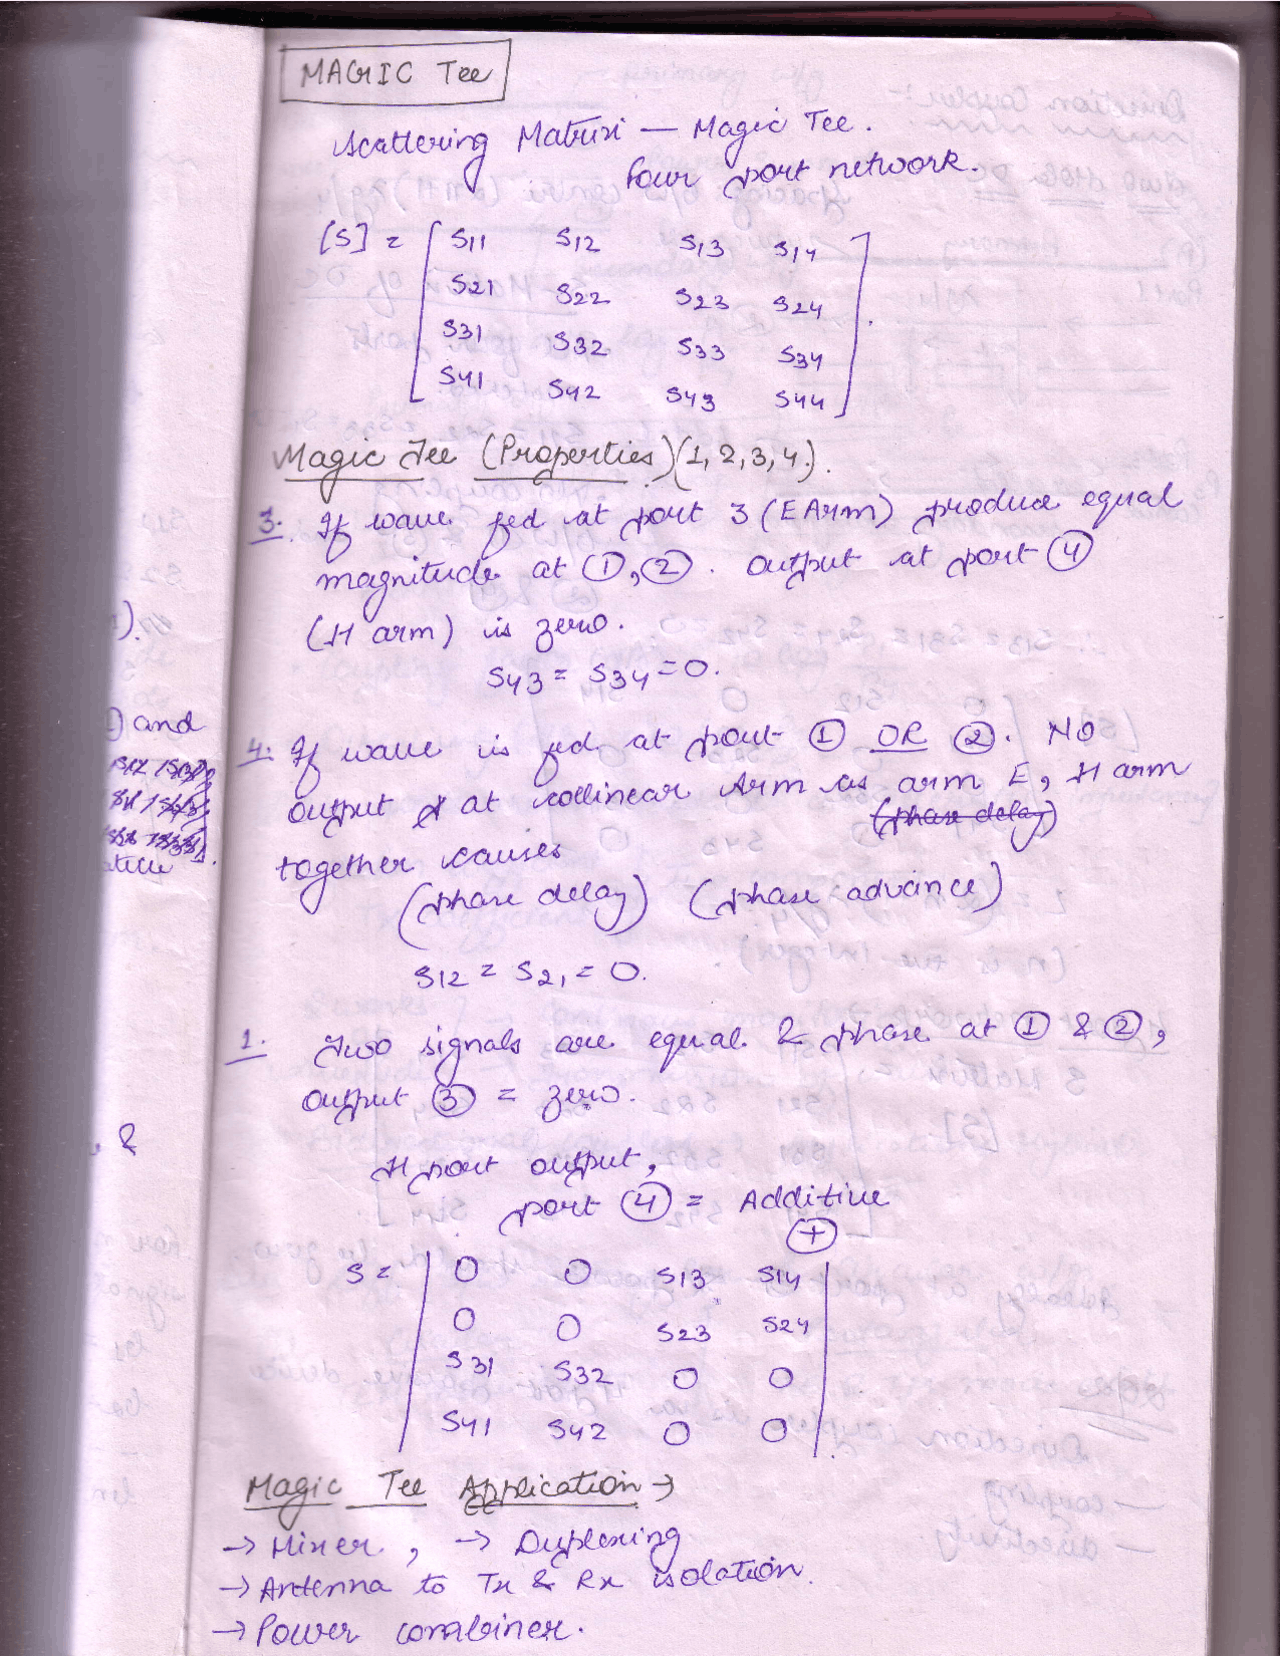 MAGIC Tee
Scattering Matrix — Magic Tee.
four port network.
[S] = [ S11 S12 S13 S14
S21 S22 S23 S24
S31 S32 S33 S34
S41 S42 S43 S44 ].
Magic Tee (Properties) (1, 2, 3, 4).
3. If wave fed at port 3 (E Arm) produce equal
magnitude at ①, ②. output at port ④
(H arm) is zero.
S43 = S34 = 0.
4. If wave is fed at port ① OR ②. NO
output at collinear Arm as arm E, H arm
(phase delay)
together causes
(phase delay) (phase advance)
S12 = S21 = 0.
1. Two signals are equal & phase at ① & ②,
output ③ = zero.
H port output,
port ④ = Additive
(+)
S = | 0 0 S13 S14 |
0 0 S23 S24
S31 S32 0 0
S41 S42 0 0
Magic Tee Application →
→ Mixer, → Duplexing
→ Antenna to Tx & Rx isolation.
→ Power combiner.
).
) and
. &